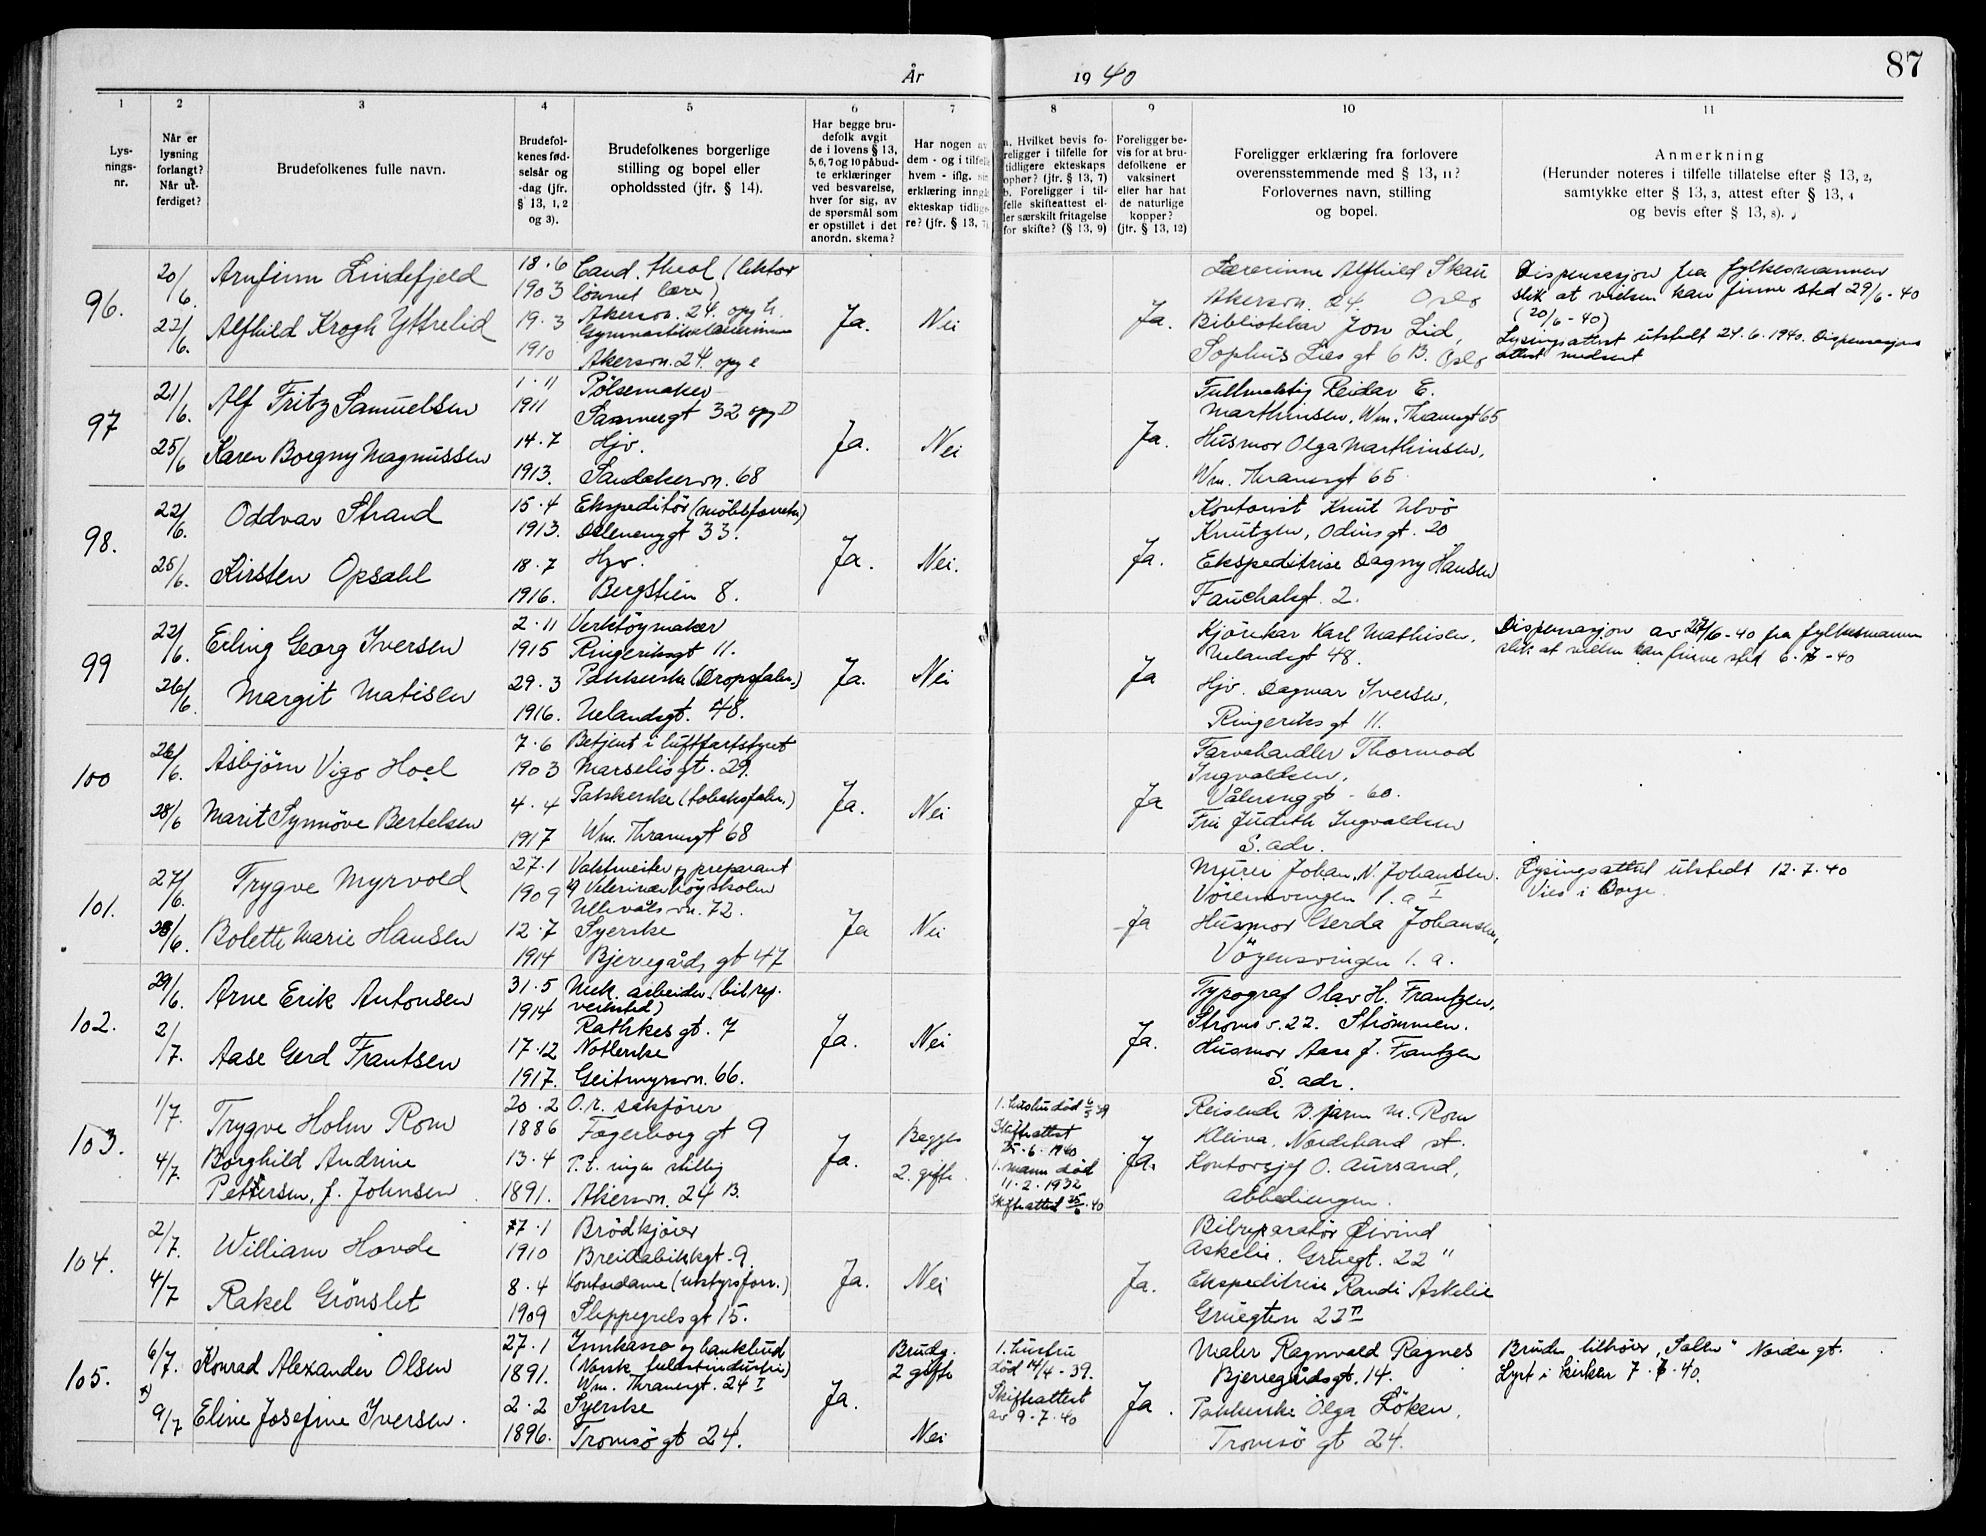 År 1940
87
1 2 3 4 5 6 7 8 9 10 11
Lys-
nings-
nr.
Når er
lysning
forlangt?
Når ut-
ferdiget?
Brudefolkenes fulle navn.
Brudefol-
kenes fød-
selsår og
-dag (jfr.
§ 13, 1, 2
og 3).
Brudefolkenes borgerlige
stilling og bopel eller
opholdssted (jfr. § 14).
Har begge bru-
defolk avgit
de i lovens § 13,
5, 6, 7 og 10 påbud-
te erklæringer
ved besvarelse,
hver for sig, av
de spørsmål som
er opstillet i det
anordn. skema?
Har nogen av
dem - og i tilfelle
hvem - iflg. sin
erklæring inngått
ekteskap tidlige-
re? (jfr. § 13, 7)
a. Hvilket bevis fo-
religger i tilfelle for
tidligere ekteskaps
ophør? (jfr. § 13, 7)
b. Foreligger i til-
felle skifteattest el-
ler særskilt fritagelse
for skifte? (§ 13, 9)
Foreligger be-
vis for at bru-
defolkene er
vaksinert
eller har hat
de naturlige
kopper?
(jfr. § 13, 12)
Foreligger erklæring fra forlovere
overensstemmende med § 13, 11?
Forlovernes navn, stilling
og bopel.
Anmerkning
(Herunder noteres i tilfelle tillatelse efter § 13, 2,
samtykke efter § 13, 3, attest efter § 13, 4
og bevis efter § 13, 8).
96.
20/6.
22/6.
Arnfinn Lindefjeld
Alfhild Krogh Yttrelid
18.6
1903
19.3
1910
Cand. theol (lektor
lønnet lærer)
Akersvn. 24. opg h.
Gymnastikklærerinne
Akersvn. 24. opg e
Ja.
Nei
Ja.
Lærerinne Alfhild Skau
Akersvn. 24. Oslo
Bibliotekar Jon Lid,
Sophus Lies gt 6 B. Oslo
Dispensasjon fra fylkesmannen
slik at vielsen kan finne sted 29/6-40
(20/6-40)
Lysingsattest utstedt 24.6.1940. Dispensasjons
attest medsent
97
21/6.
25/6
Alf Fritz Samuelsen
Karen Borgny Magnussen
1.11
1911
14.7
1913.
Pølsemaker
Sannergt 32 opg D
Hjv.
Sandakervn. 68
Ja.
Nei
Ja.
Fullmektig Reidar E.
Marthinsen, Wm. Thranesgt 65
Husmor Olga Marthinsen,
Wm. Thranesgt 65
98.
22/6.
25/6.
Oddvar Strand
Kirsten Opsahl
15.4
1913.
18.7
1916.
Ekspeditør (møbelforretn)
Delenenggt 33.
Hjv.
Bergstien 8.
Ja.
Nei.
Ja.
Kontorist Knut Ulvø
Knutzen, Odinsgt. 20
Ekspeditrise Dagny Hansen
Fauchalsgt. 2.
99
22/6.
26/6.
Erling Georg Iversen
Margit Matisen
2.11
1915
29.3
1916.
Verktøymaker
Ringeriksgt 11.
Pakkerske (Dropsfabr.)
Uelandsgt. 48.
Ja.
Nei
Ja
Kjørekar Karl Mathisen,
Uelandsgt 48.
Hjv. Dagmar Iversen,
Ringeriksgt 11.
Dispensasjon av 27/6-40 fra fylkesmannen
slik at vielsen kan finne sted 6-7-40
100
26/6.
28/6
Asbjørn Vigo Hoel
Marit Synnøve Bertelsen
7.6
1903
4.4
1917
Betjent i luftfartstyret
Marselisgt. 29.
Pakkerske (tobaksfabr.)
Wm. Thranesgt 68
Ja.
Nei
Ja
Farvehandler Thormod
Ingvaldsen,
Vålerenggt - 60.
Fru Judith Ingvaldsen
S. adr.
101.
27/6.
28/6.
Trygve Myrvold
Bolette Marie Hansen
27.1
1909
12.7
1914
Vaktmester og preparant
v/ Veterinærhøyskolen
Ullevålsvn. 72.
Syerske
Bjerregårds gt 47
Ja
Nei
Ja
Murer Johan N. Johansen.
Vøiensvingen 1. a I
Husmor Gerda Johansen,
Vøyensvingen 1. a.
Lysingsattest utstedt 12.7.40
Vies i Borge.
102.
29/6.
2/7.
Arne Erik Antonsen
Aase Gerd Frantsen
31.5
1914
17.12
1917.
Mek. arbeider (bilrep.
verksted)
Rathkes gt. 7
Notlerske
Geitmyrsvn. 66.
Ja.
Nei
Ja.
Typograf Olav H. Frantzen,
Strøms v. 22. Strømmen.
Husmor Aase J. Frantzen
S. adr.
103.
1/7.
4/7.
Trygve Holm Rom
Borghild Andrine
Pettersen, f. Johnsen
20.2
1886
13.4
1891.
O.r. sakfører
Fagerborg gt 9
P.t. ingen stilling
Akersvn. 24 B.
Ja.
Begge
2. gifte.
1. hustru død 6/3 39
Skifteattest
25.6.1940
1. mann død
11.2.1932
Skifteattest 25/6.40
Ja.
Reisende Bjarne M. Rom
Kleiva, Nordstrand st.
Kontorsjef O. Aursand,
Abbediengen.
104.
2/7.
4/7
William Hovde
Rakel Grønslet
17.1
1910
8.4
1909
Brødkjører
Breidablikkgt. 9.
Kontordame (utstyrsforr.)
Steppegrelsgt 15.
Ja.
Nei
Ja.
Bilreparatør Øivind
Askelie. Gruegt. 22 "
Ekspeditrise Randi Askelie
Gruegten 22 II
105.
6/7.
x)
9/7
Konrad Alexander Olsen
Eline Josefine Iversen.
27.1
1891.
2.2
1896.
Innkasso og bankbud
Wm. Thranesgt. 24 I
Syerske
Tromsø gt 24.
Ja.
Brudg.
2 gifte
Nei
1. hustru
død 14/4-39.
Skifteattest
av 9.7.40
Ja.
Maler Ragnvald Ragnes
Bjerregårdsgt. 14.
Pakkerske Olga Løken,
Tromsø gt 24.
Bruden tilhører „Salen" Nordre gt.
Lyst i kirken 7.7.40.